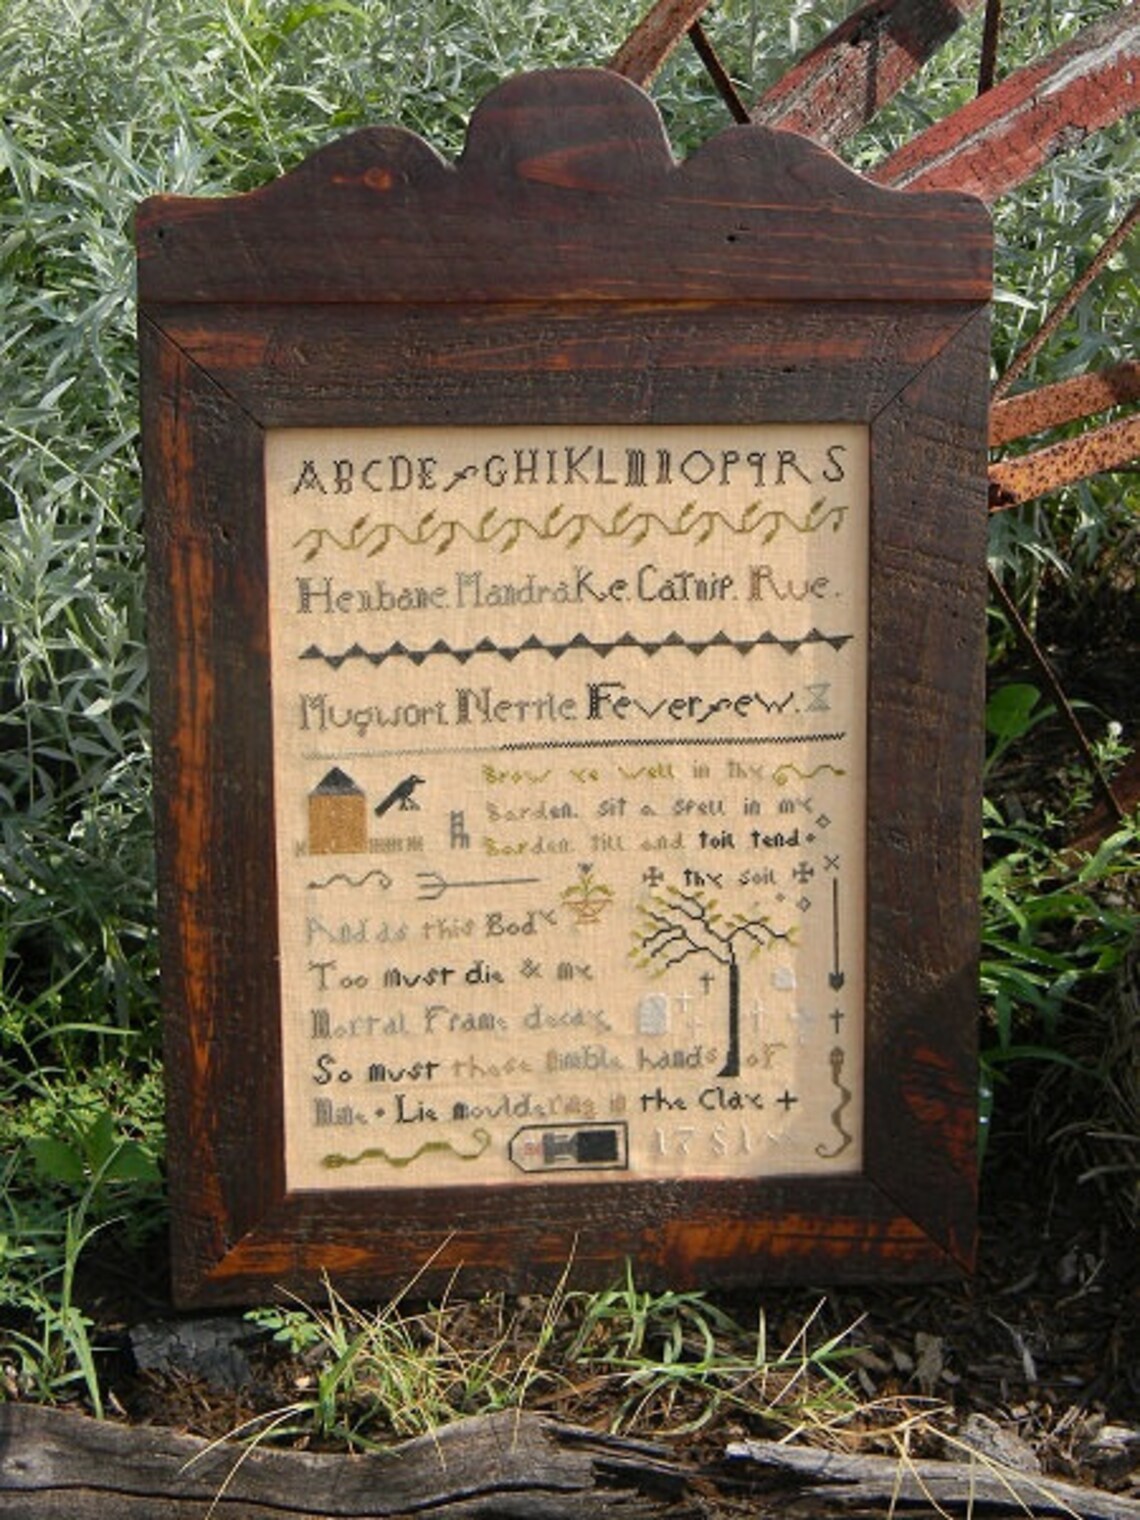 ABCDEfGHIKLMNOPqRS
Henbane. Mandrake. Catnip. Rue.
Mugwort. Nettle. Feverfew.
Grow ye well in thy
Garden. sit a spell in my
Garden. till and toil tend
thy soil
And as this Body
Too must die & my
Mortal Frame decay
So must these nimble hands of
Mine • Lie mouldering in the Clay +